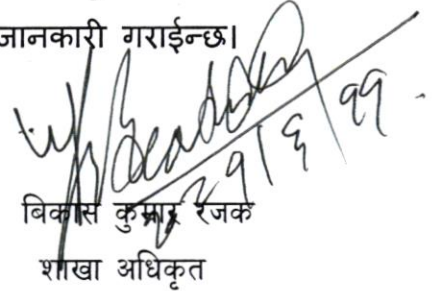 जानकारी गराईन्छ।
बिकास कुमार रजक
शाखा अधिकृत